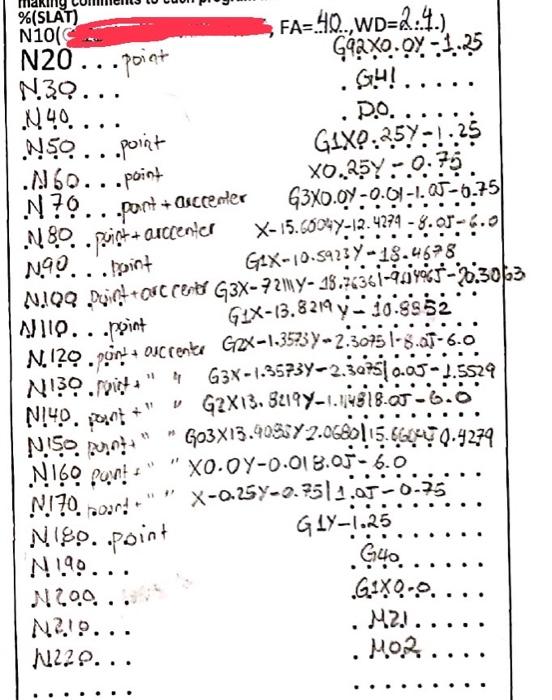 making comments to each progra
%(SLAT)
N10( , FA=.40..,WD=2.4.)
N20 ...point G92X0.0Y-1.25
N30... G41
N40.... D0......
N50...point G1X0.25Y-1.25
N60...point X0.25Y-0.75
N70...point+arccenter G3X0.0Y-0.01-1.0J-0.75
N80..point+arccenter X-15.6004Y-12.4279-8.0J-6.0
N90...point G1X-10.5923Y-18.4678
N100 point+arc center G3X-7211Y-18.7636
N110...point G1X-13.8219Y-10.8852
N120.point+arccenter G2X-1.3573Y-2.3075I-8.0J-6.0
N130.point+" " G3X-1.3573Y-2.3075I0.0J-1.5529
N140. point+" " G2X13.8219Y-1.1481 8.0J-6.0
N150 point+" " G03X13.9035Y2.0680I 0.4279
N160 point+" " X0.0Y-0.01 8.0J-6.0
N170.point+" " X-0.25Y-0.75I1.0J-0.75
N180..point G1Y-1.25
N190... G40
N200... G1X0-0
N210... M21
N220... M02